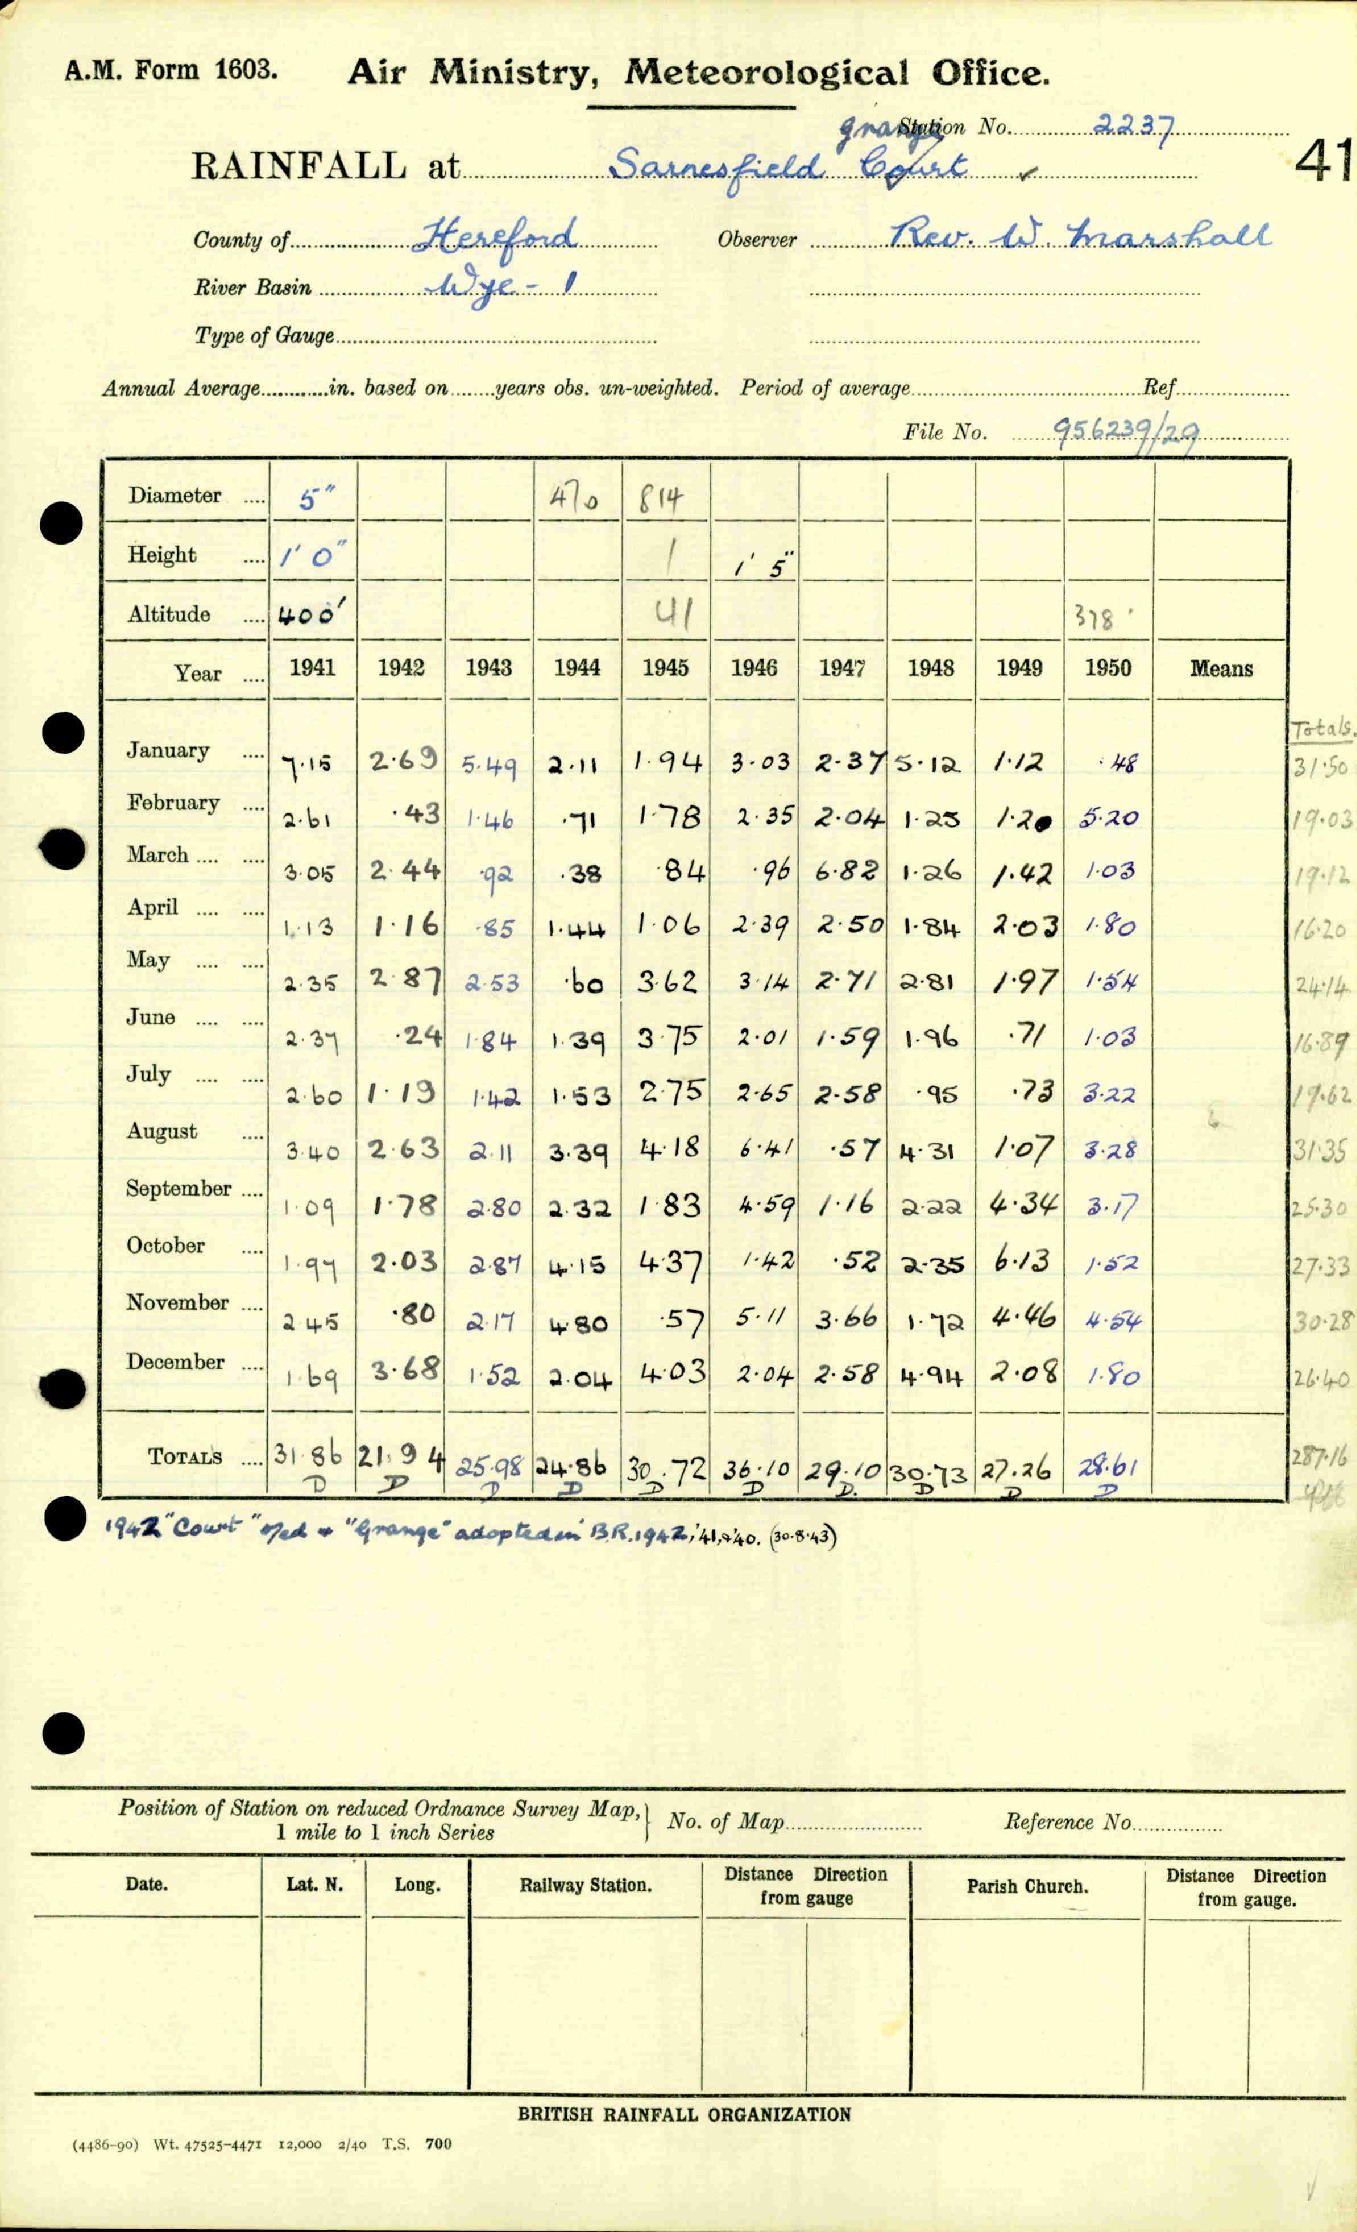 A.M. Form 1603. Air Ministry, Meteorological Office.
Station No. 2237
Grange
RAINFALL at Sarnesfield Court ✓
41
County of Hereford Observer Rev. W. Marshall
River Basin Wye - 1
Type of Gauge
Annual Average in. based on years obs. un-weighted. Period of average Ref
File No. 956239/29
Diameter 5" 470 814
Height 1' 0" 1 1' 5"
Altitude 400' 41 378'
Year 1941 1942 1943 1944 1945 1946 1947 1948 1949 1950 Means
Totals.
January 7.15 2.69 5.49 2.11 1.94 3.03 2.37 5.12 1.12 .48 31.50
February 2.61 .43 1.46 .71 1.78 2.35 2.04 1.25 1.20 5.20 19.03
March 3.05 2.44 .92 .38 .84 .96 6.82 1.26 1.42 1.03 19.12
April 1.13 1.16 .85 1.44 1.06 2.39 2.50 1.84 2.03 1.80 16.20
May 2.35 2.87 2.53 .60 3.62 3.14 2.71 2.81 1.97 1.54 24.14
June 2.37 .24 1.84 1.39 3.75 2.01 1.59 1.96 .71 1.03 16.89
July 2.60 1.19 1.42 1.53 2.75 2.65 2.58 .95 .73 3.22 19.62
August 3.40 2.63 2.11 3.39 4.18 6.41 .57 4.31 1.07 3.28 31.35
September 1.09 1.78 2.80 2.32 1.83 4.59 1.16 2.22 4.34 3.17 25.30
October 1.97 2.03 2.87 4.15 4.37 1.42 .52 2.35 6.13 1.52 27.33
November 2.45 .80 2.17 4.80 .57 5.11 3.66 1.72 4.46 4.54 30.28
December 1.69 3.68 1.52 2.04 4.03 2.04 2.58 4.94 2.08 1.80 26.40
TOTALS 31.86 21.94 25.98 24.86 30.72 36.10 29.10 30.73 27.26 28.61 287.16
D D D D D D D. D D D
1942 "Court" o/ed + "Grange" adopted in B.R. 1942, '41, & '40. (30.8.43)
Position of Station on reduced Ordnance Survey Map, No. of Map Reference No
1 mile to 1 inch Series
Date. Lat. N. Long. Railway Station. Distance Direction from gauge Parish Church. Distance Direction from gauge.
BRITISH RAINFALL ORGANIZATION
(4486-90) Wt. 47525-4471 12,000 2/40 T.S. 700